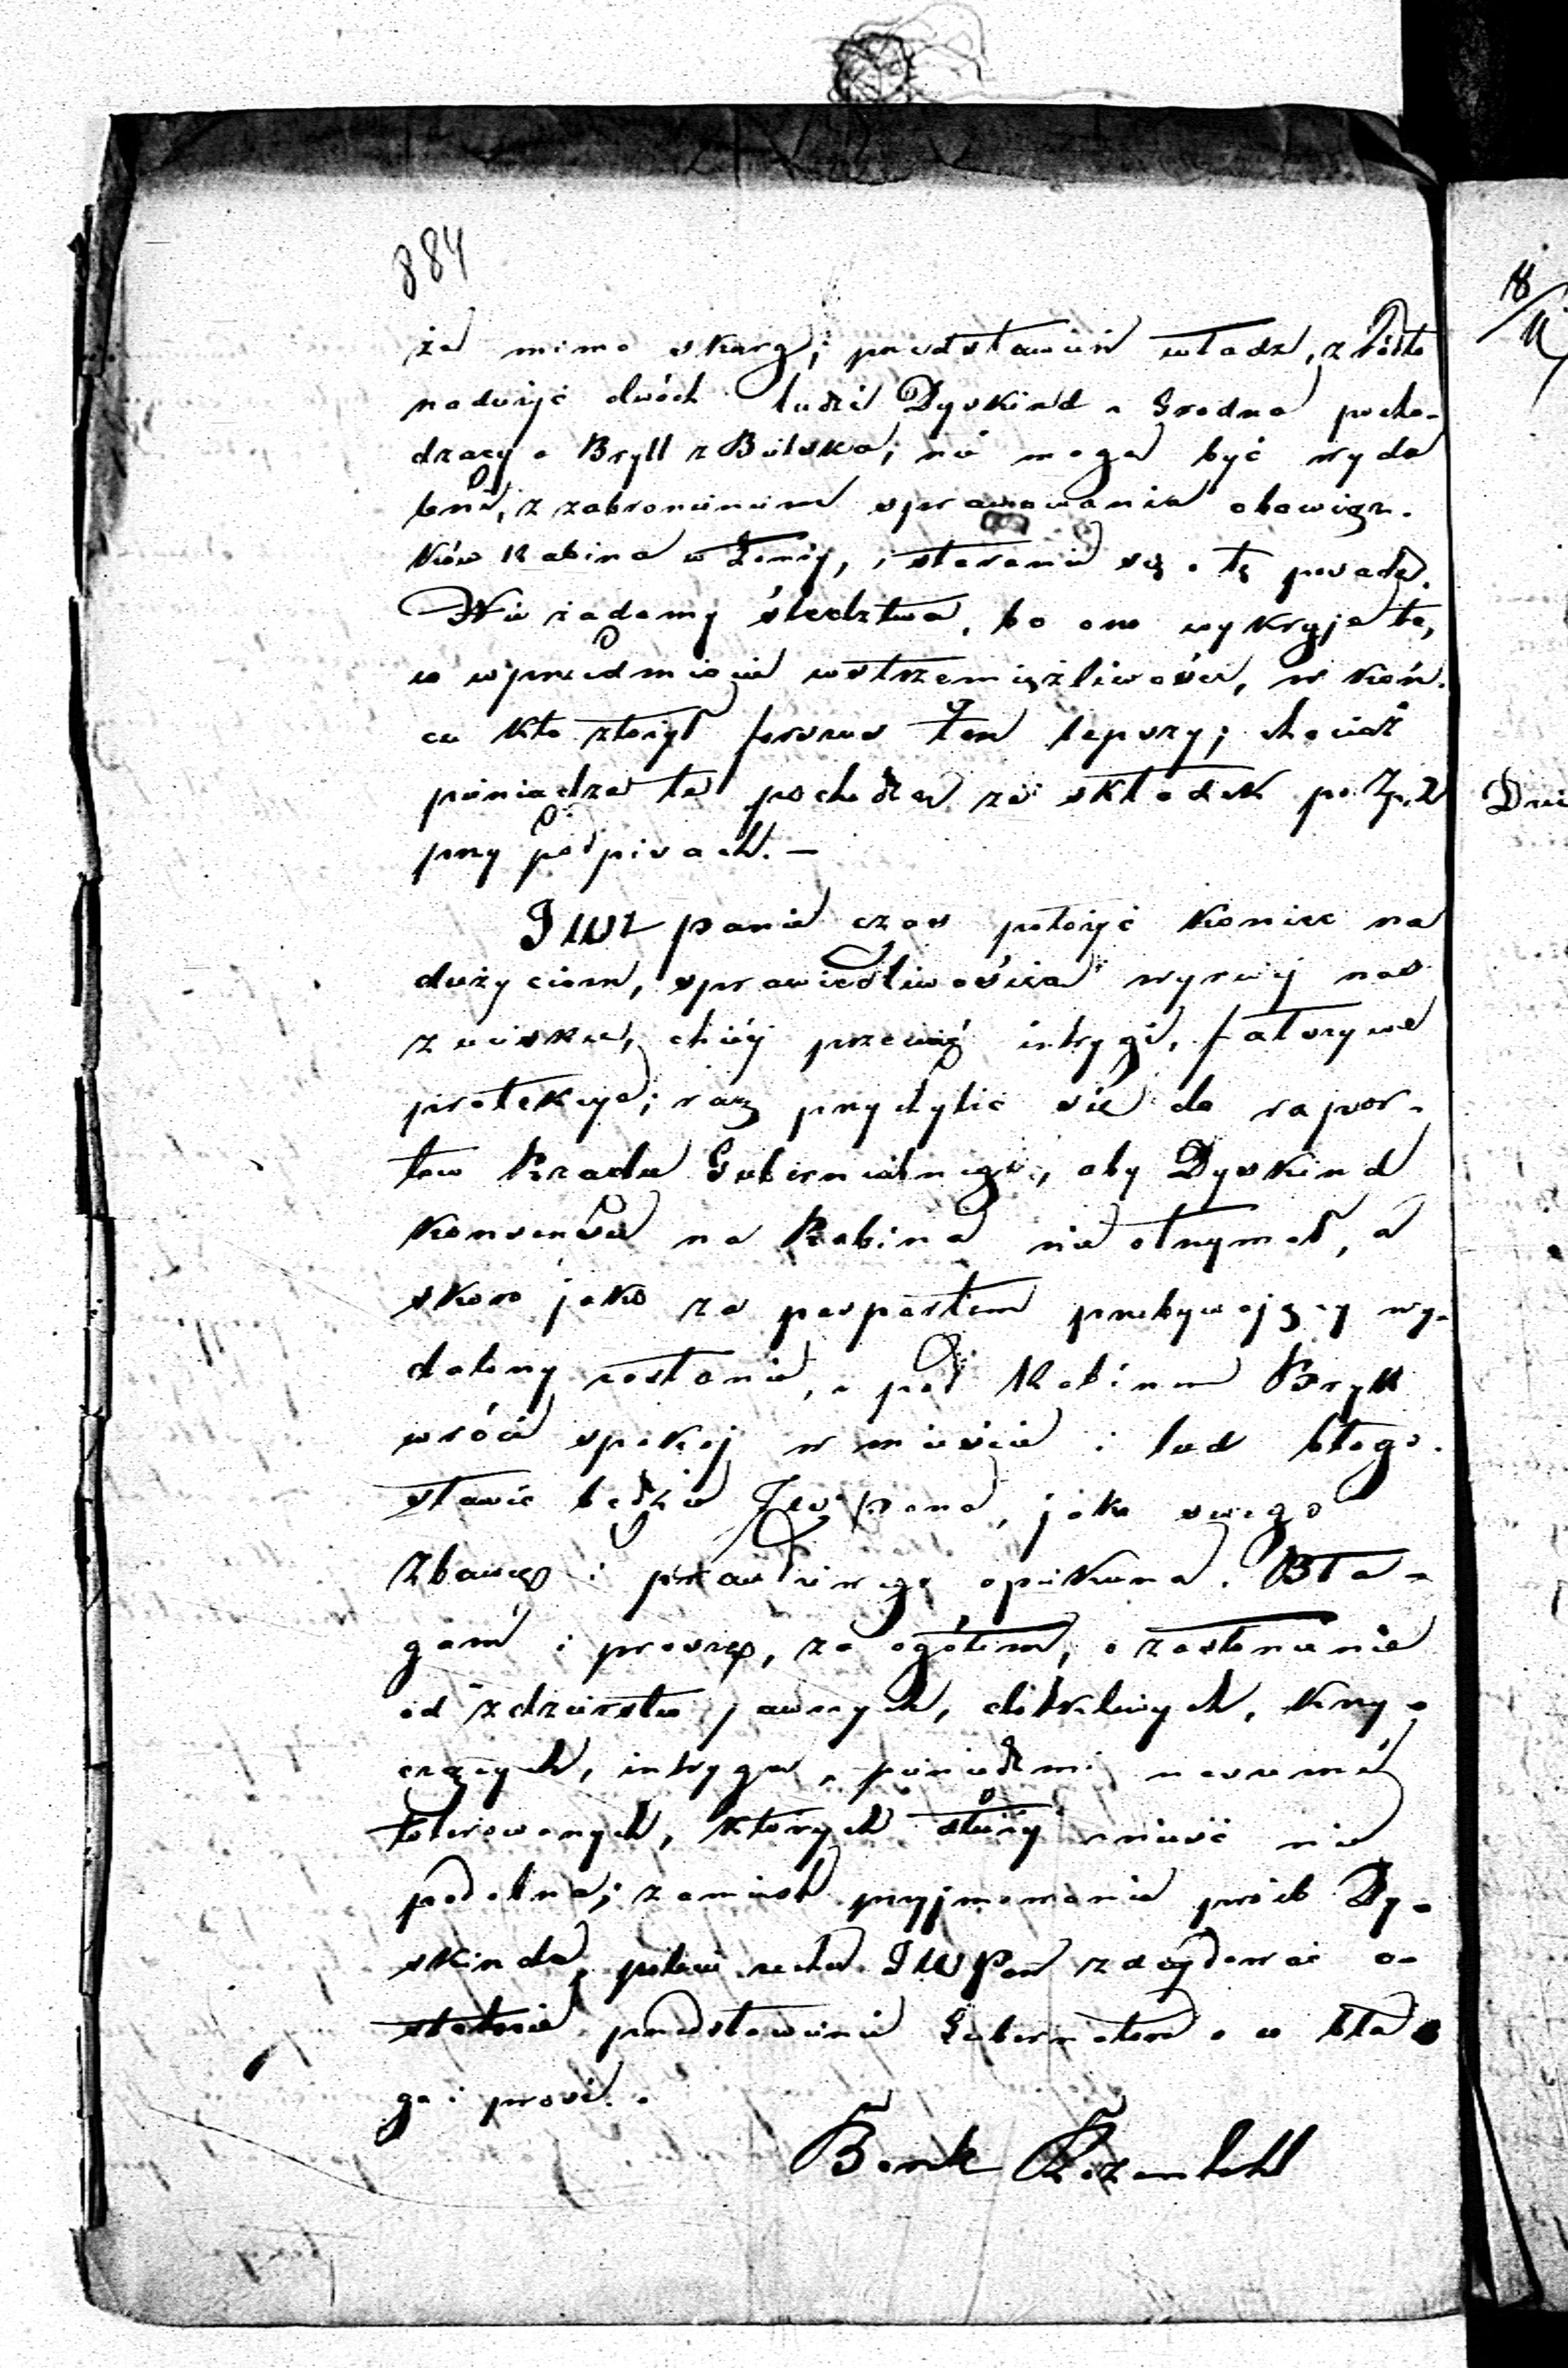 884
że mimo skarg, i przedstawień władz, źródło
nadużyć dwóch ludzi Dyskind z Grodna pocho-
dzący a Bryll z Bielska; nie mogą być wyda
leni, z zabronieniem sprawowania obowiąz-
ków Rabina w Łomży, i starania się o tę posadę.
Nie żądamy śledztwa, bo ono wykryje to,
co w przedmiocie wstrzemięźliwości, w koń-
cu kto złożył ten lepszy; chociaż
pieniądze te pochodzą ze składek po Zp. 2
przy podpisach. —
JWW panie czas położyć koniec na
dużyciom, sprawiedliwością wyrwij nas
z ucisku, chciej przeciąć intrygi, fałszywe
protekcye; racz przychylić się do rapor-
tów Rządu Gubernialnego, aby Dyskind
konsensu na Rabina nie otrzymał, a
skoro jako za paszportem przebywający wy-
dalony zostanie, a pod Rabinem Bryll
wróci spokój w mieście i lud błogo-
sławić będzie JW Pana, jako swego
zbawcę i prawdziwego opiekuna. Bła-
gam i proszę, za ogółem, o zasłonienie
od zdzierstw jawnych, dotkliwych, krzy-
czących, intrygą, pieniędzmi
tolerowanych, których dłużej znieść nie
podobna; zamiast przyjmowania próśb Dy-
skinda, JW Pan zadecydować o-
statnie przedstawienie Gubernatora o co bła
ga i prosi.
Berek Rozenbchl
18
Dnia